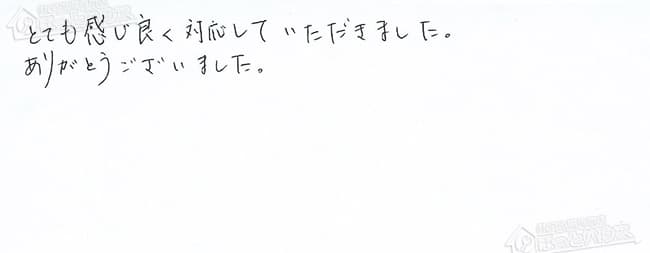 とても感じ良く対応していただきました。
ありがとうございました。